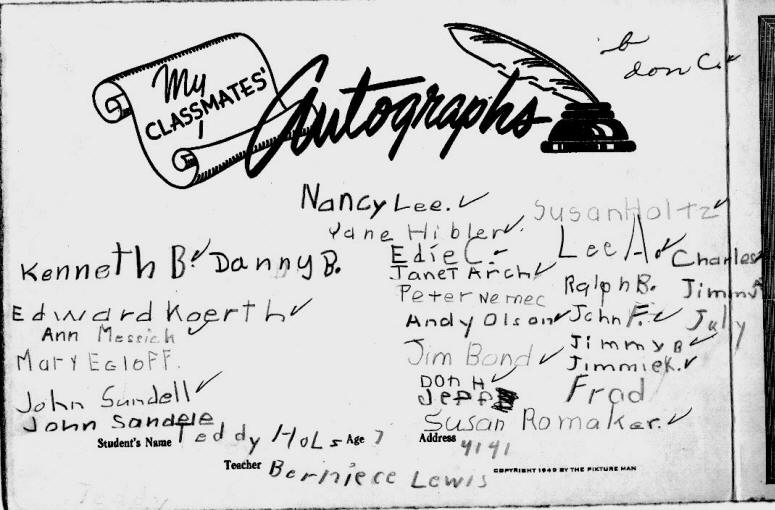 My
CLASSMATES'
Autographs
don C.
Nancy Lee.
Susan Holtz
Yane Hibler
Kenneth B. Danny B.
Edie C.
Lee A.
Charles
Janet Arch
Ralph B.
Jimmy
Peter Nemec
Edward Koerth
Andy Olson
John F.
July
Ann Messich
Jimmy B
Mary Egloff.
Jim Bond
Jimmie K.
John Sundell
Don H
Jeff
Frad
John Sandele
Susan Romaker.
Student's Name Teddy HoLs Age 7 Address 4141
Teacher Berniece Lewis
COPYRIGHT 1949 BY THE PIKTURE MAN
Teddy